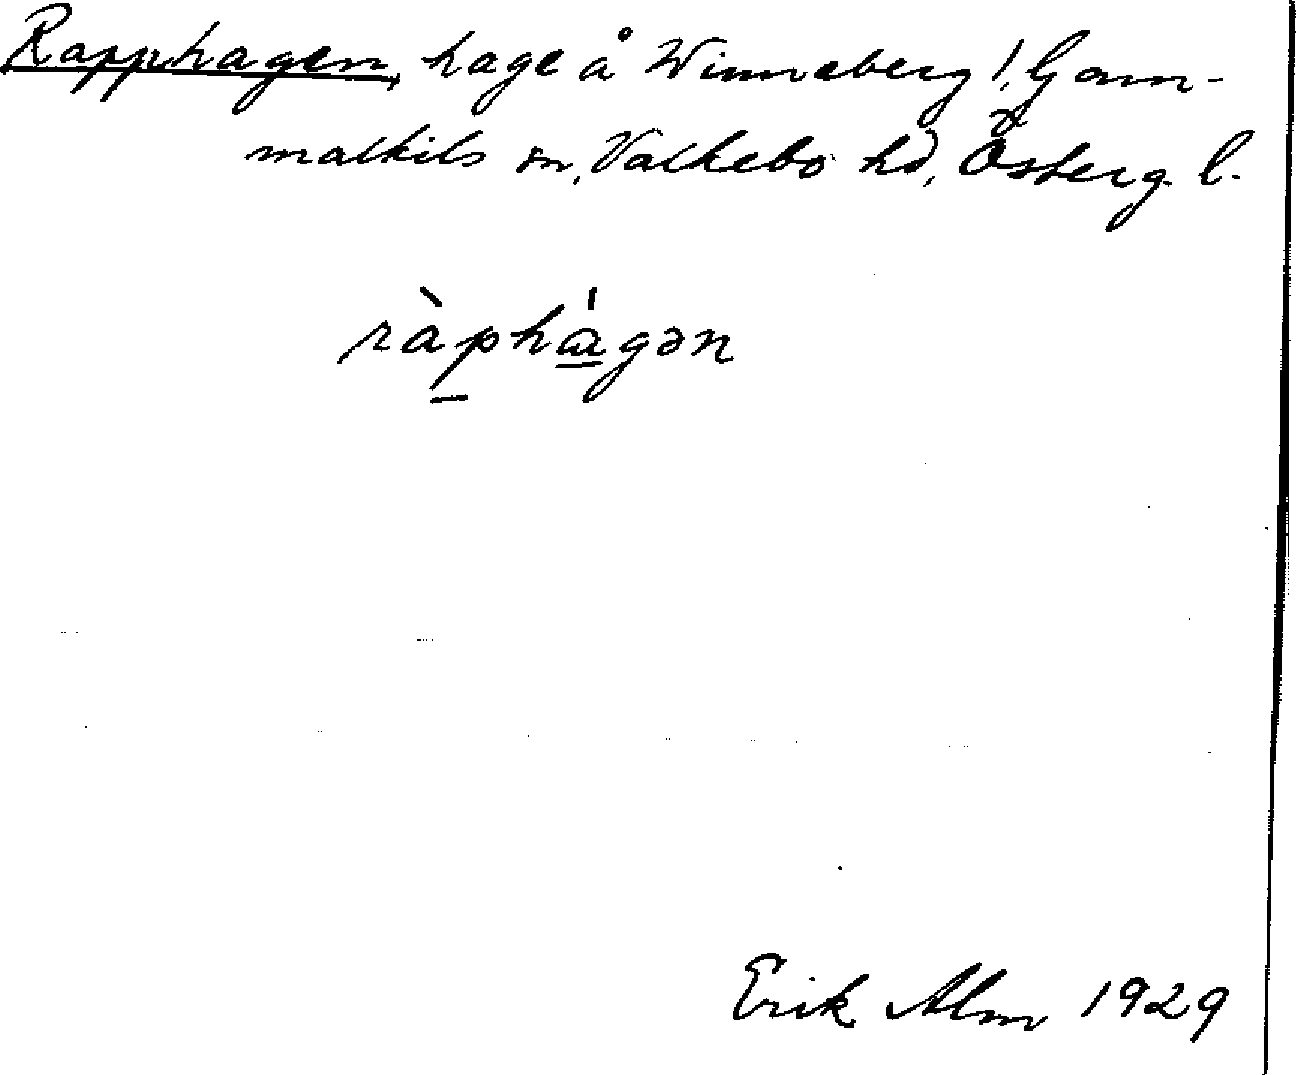 Rapphagen, hage å Winneberg 1, Gam-
malkils sn, Valkebo hd, Österg. l.
ràp̠há̳gən
Erik Alm 1929